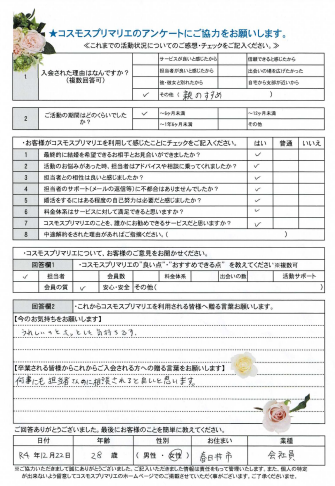 ★コスモスプリマリエのアンケートにご協力をお願いします。
≪これまでの活動状況についてのご感想・チェックをご記入ください。≫
1 入会された理由はなんですか？(複数回答可)
サービスが良いと感じたから 信頼できると感じたから
担当者が良いと感じたから 出会いの場を広げたかった
他・彼女と別れたから 自宅から支部が近いから
✓ その他( 親のすすめ )
2 ご活動の期間はどのくらいでしたか？
✓ ～6ヶ月未満 ～12ヶ月未満
～1年6ヶ月未満 その他
・お客様がコスモスプリマリエを利用して感じたことにチェックをご記入ください。 はい 普通 いいえ
1 最終的に結婚を希望できるお相手とお見合いができましたか？ ✓
2 活動のお悩みがあった時、担当者はアドバイスや相談に乗ってくれましたか？ ✓
3 担当者との相性は良いと感じましたか？ ✓
4 担当者のサポート(メールの返信等)に不都合はありませんでしたか？ ✓
5 婚活をするにはある程度の自己努力は必要だと感じましたか？ ✓
6 料金体系はサービスに対して満足できると思いますか？ ✓
7 コスモスプリマリエのことを、誰かにお勧めできるサービスだと思いますか？ ✓
8 中途解約をされた理由があればご指摘ください。( )
・コスモスプリマリエについて、お客様のご意見をお聞かせください。
回答欄1 ・コスモスプリマリエの"良い点"・"おすすめできる点" を教えてください※複数可
✓ 担当者 会員数 料金体系 出会いの数 活動サポート
会員の質 ✓ 安心・安全 その他( )
回答欄2 ・これからコスモスプリマリエを利用される皆様へ贈る言葉お願いします。
【今のお気持ちをお願いします】
うれしいのとホッとした気持ちです。
【卒業される皆様からこれからご入会される方への贈る言葉をお願いします】
何事にも担当さんに相談されると良いと思います。
ご回答ありがとうございました。最後にお客様のことを簡単に教えてください。
日付 年齢 性別 お住まい 業種
R4年12月22日 28 歳 (男性・女性) 春日井市 会社員
※ご協力いただきまして誠にありがとうございました。ご記入いただきました情報は責任をもって管理いたします。また、個人の特定
が出来ないよう留意してコスモスプリマリエのホームページでのご掲載させていただく事がございます。ご了承くださいませ。